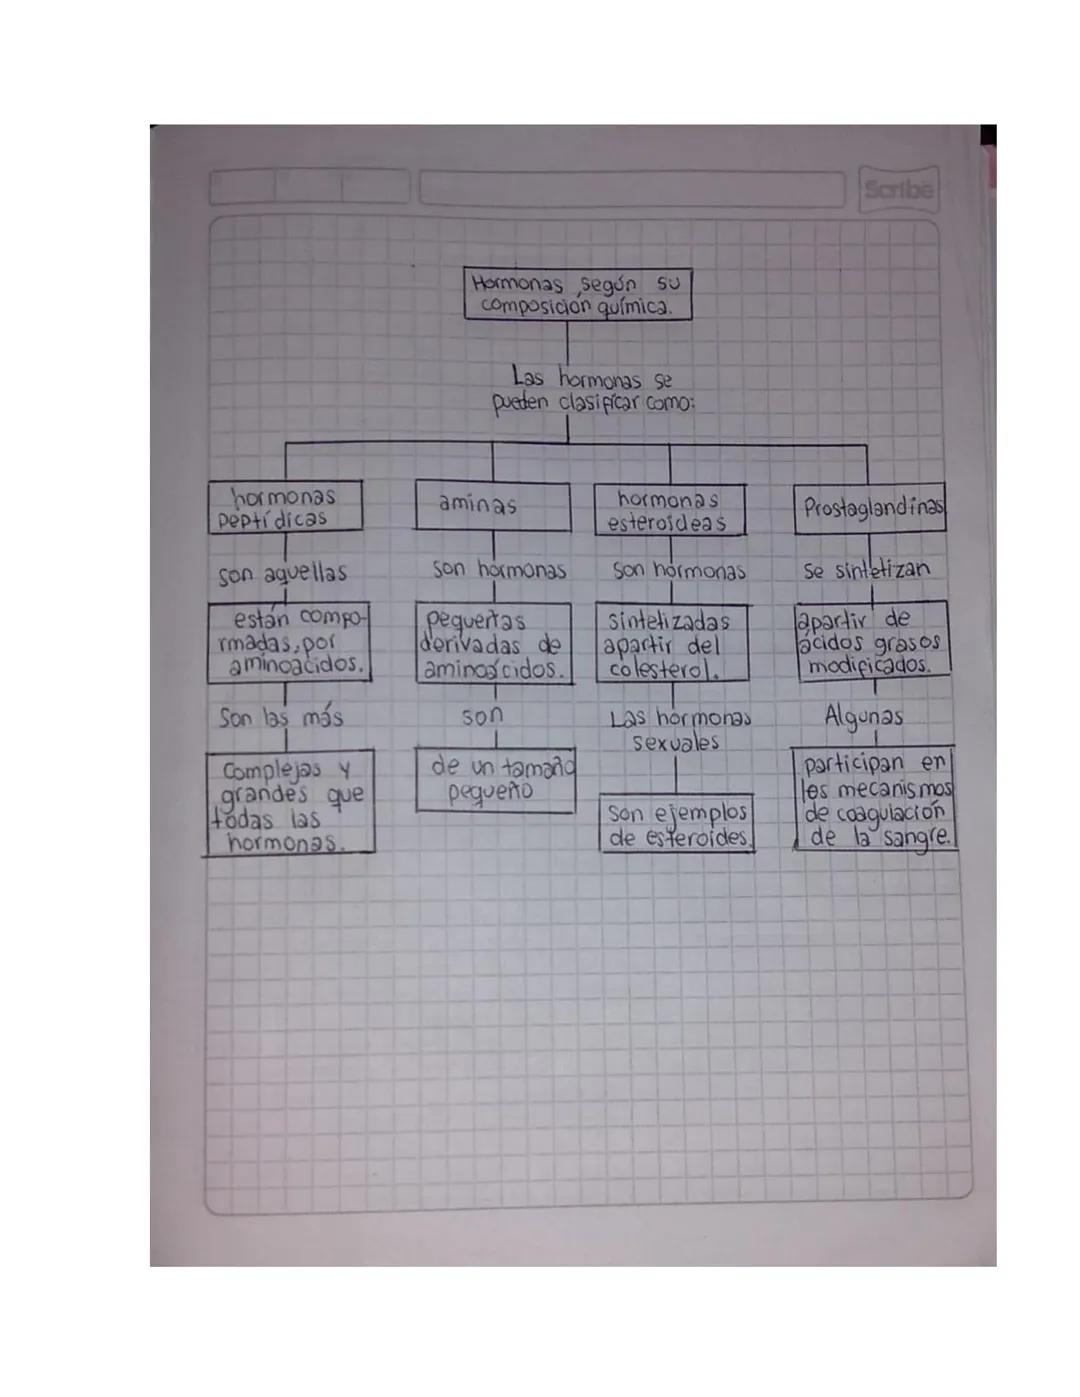 Scribe
Hormonas según su
composición química.
Las hormonas se
pueden clasificar como:
hormonas
peptídicas
son aquellas
están compo-
rmadas, por
aminoacidos.
Son las más
Complejas y
grandes que
todas las
hormonas.
aminas
son hormonas
pequeñas
derivadas de
aminoácidos.
son
de un tamaño
pequeño
hormonas
esteroideas
son hormonas
sintetizadas
apartir del
colesterol.
Las hormonas
sexuales
son ejemplos
de esteroides.
Prostaglandinas
se sintetizan
apartir de
ácidos grasos
modificados.
Algunas
participan en
los mecanismos
de coagulación
de la sangre.